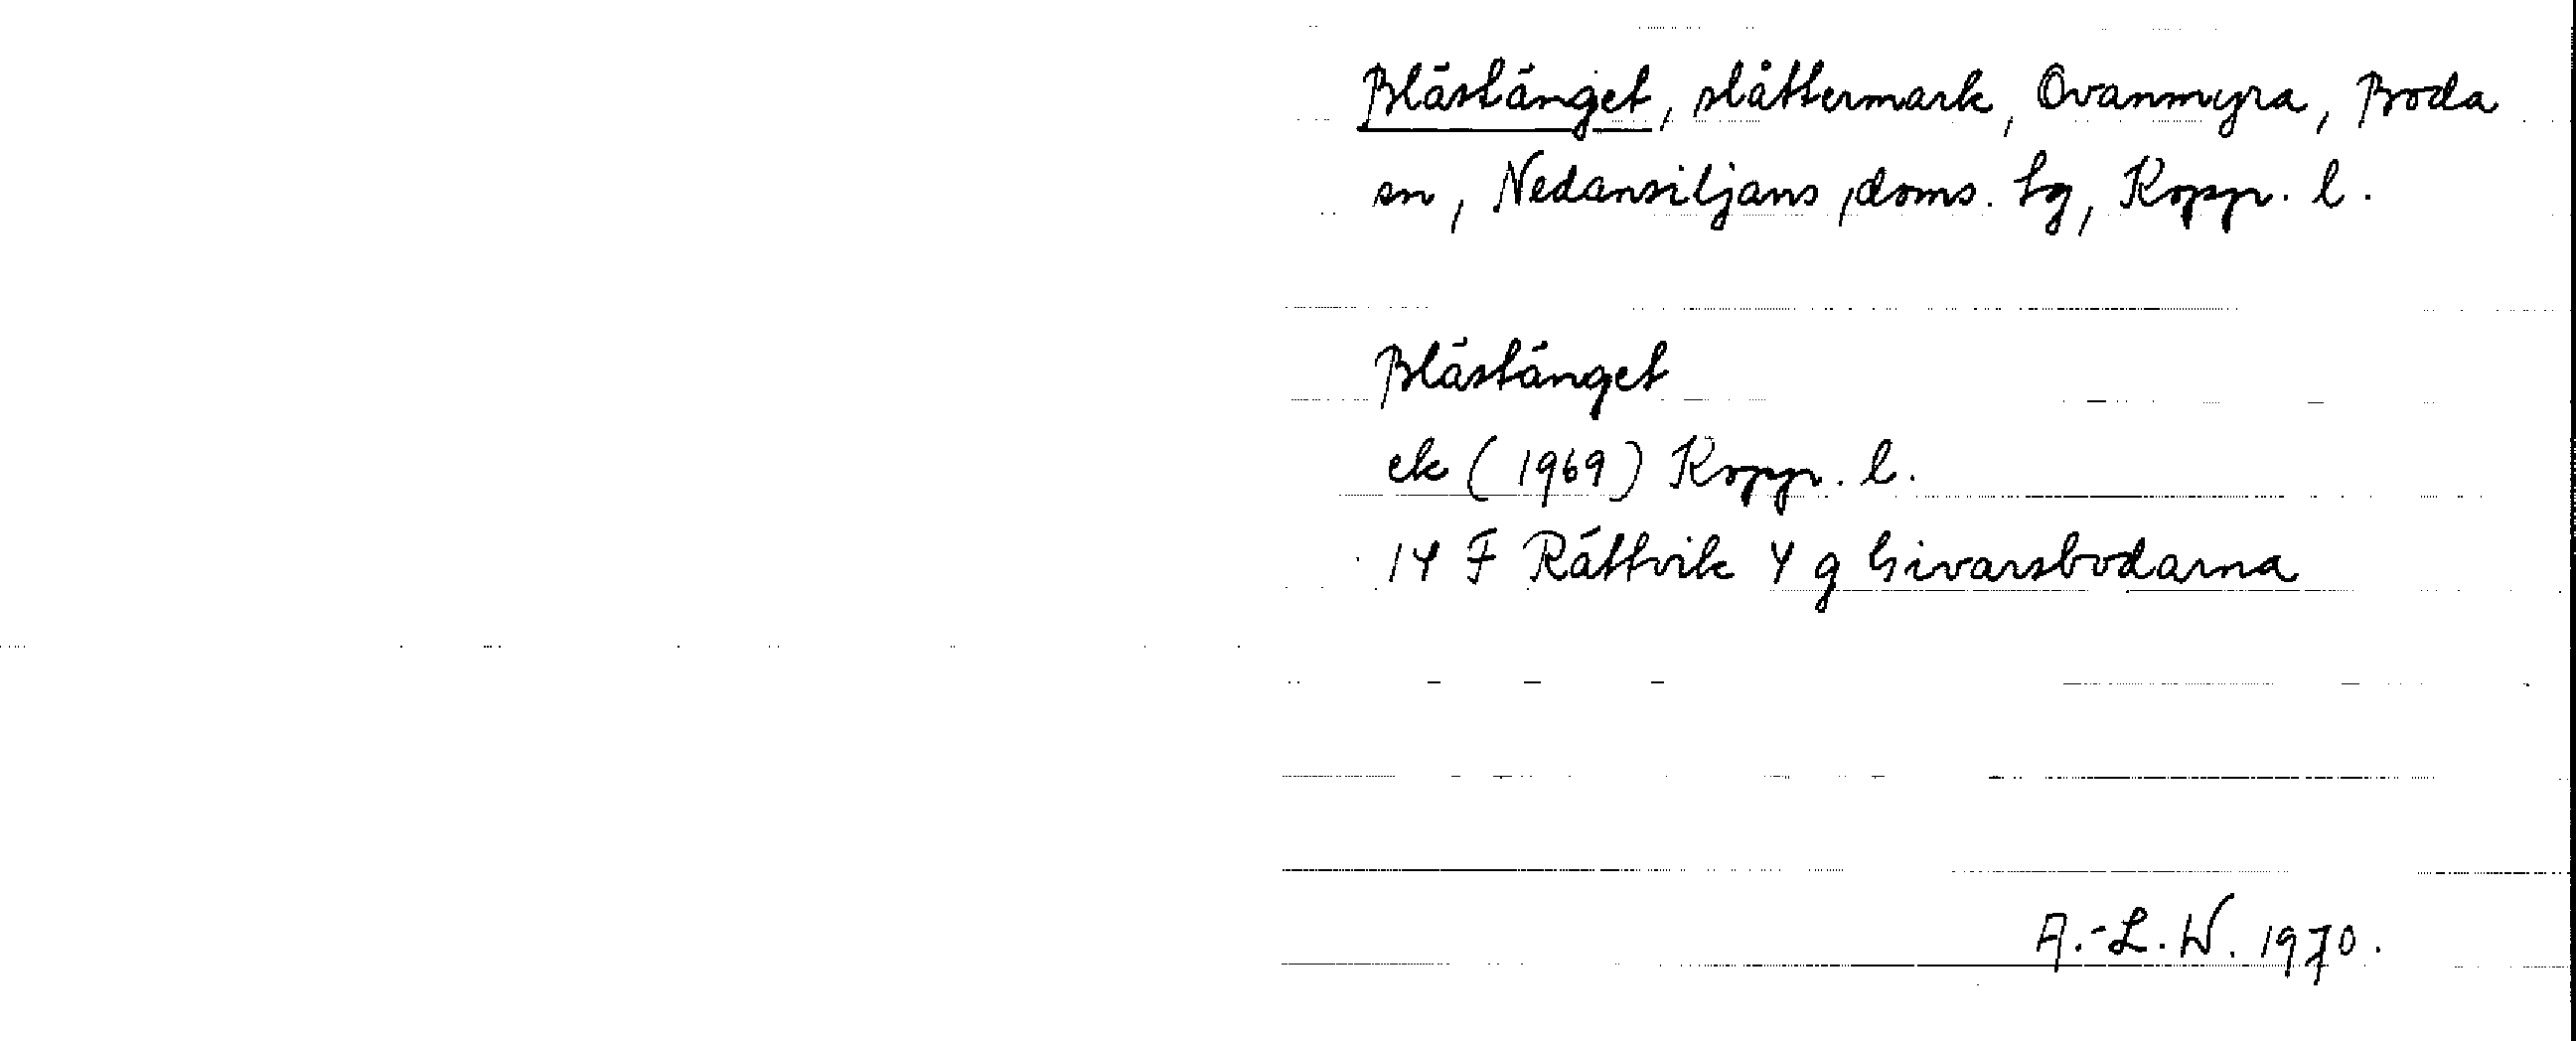 Blästänget, slåttermark, Ovanmyra, Boda
sn, Nedansiljans doms. tg, Kopp. l.
Blästänget
ek (1969) Kopp. l.
14 F Rättvik 4 g Givarsbodarna
A.-L. W. 1970.